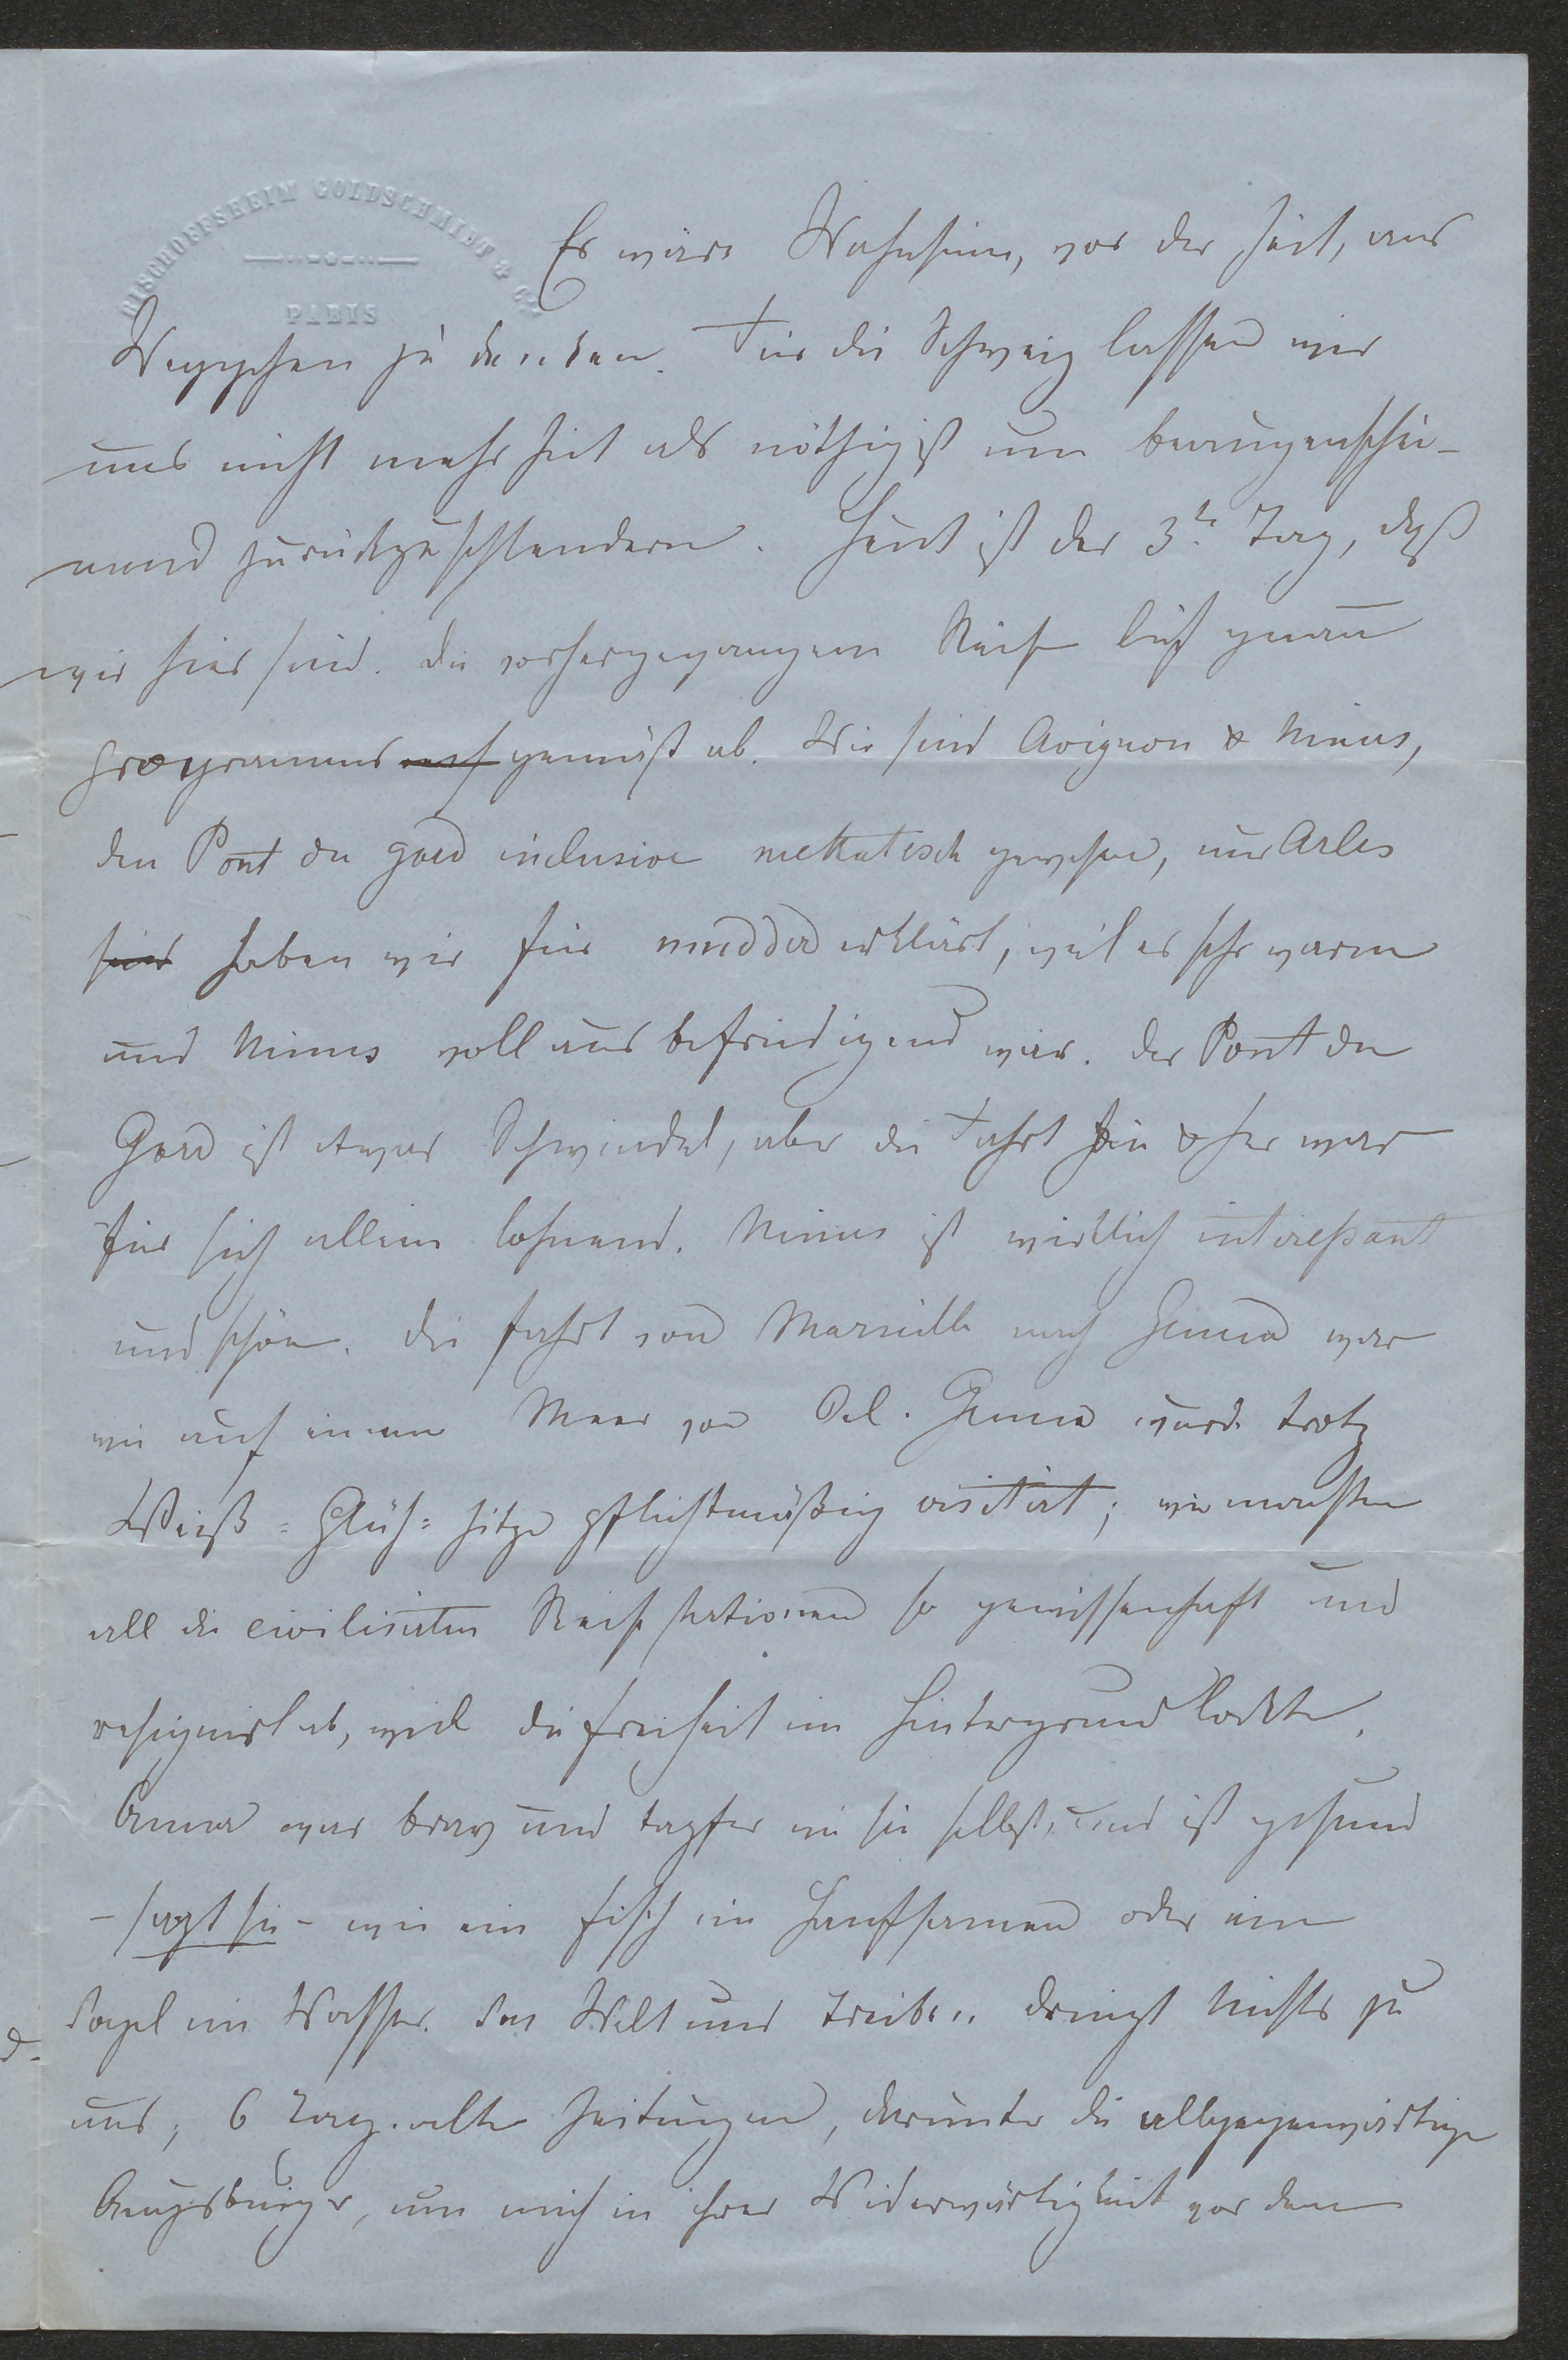 BISCHOFFSHEIM GOLDSCHMIDT & Cie
PARIS
Es wäre Wahnsinn, vor der Zeit, ans
Weggehen zu denken. Für die Schweiz lassen wir
uns nicht mehr Zeit als nöthig ist um beaugenschei-
nend zurückzuschlendern. Heut ist der 3te Tag, daß
wir hier sind. Die vorhergegangene Reise lief genau
programms gemäß ab. Wir sind Avignon & Nimes,
den Pont du gard inclusive gewesen, nur Arles
haben wir für erklärt, weil es sehr warm
und Nimes vollauf befriedigend war. Der Pont du
Gard ist etwas Schwindel, aber die Fahrt hin & her war
für sich allein lohnend. Nimes ist wirklich interessant
und schön. Die Fahrt von Marseille nach Genua war
wie auf einem Meer von Oel. Genua wurde trotz
Weiß-Glüh-hitze pflichtmäßig visitirt; wir machten
all die civilisirten Reisestationen so gewissenhaft und
resignirt ab, weil die Freiheit im Hintergrund lockte.
Anna war brav und tapfer wie sie selbst, und ist gesund
- sagt sie - wie ein Fisch im Hanfsamen oder ein
Vogel im Wasser. Von Welt und Treiben dringt Nichts zu
uns; 6 Tag alte Zeitungen, darunter die allgegenwärtige
Augsburger, um mich in ihrer Widerwärtigkeit vor dem